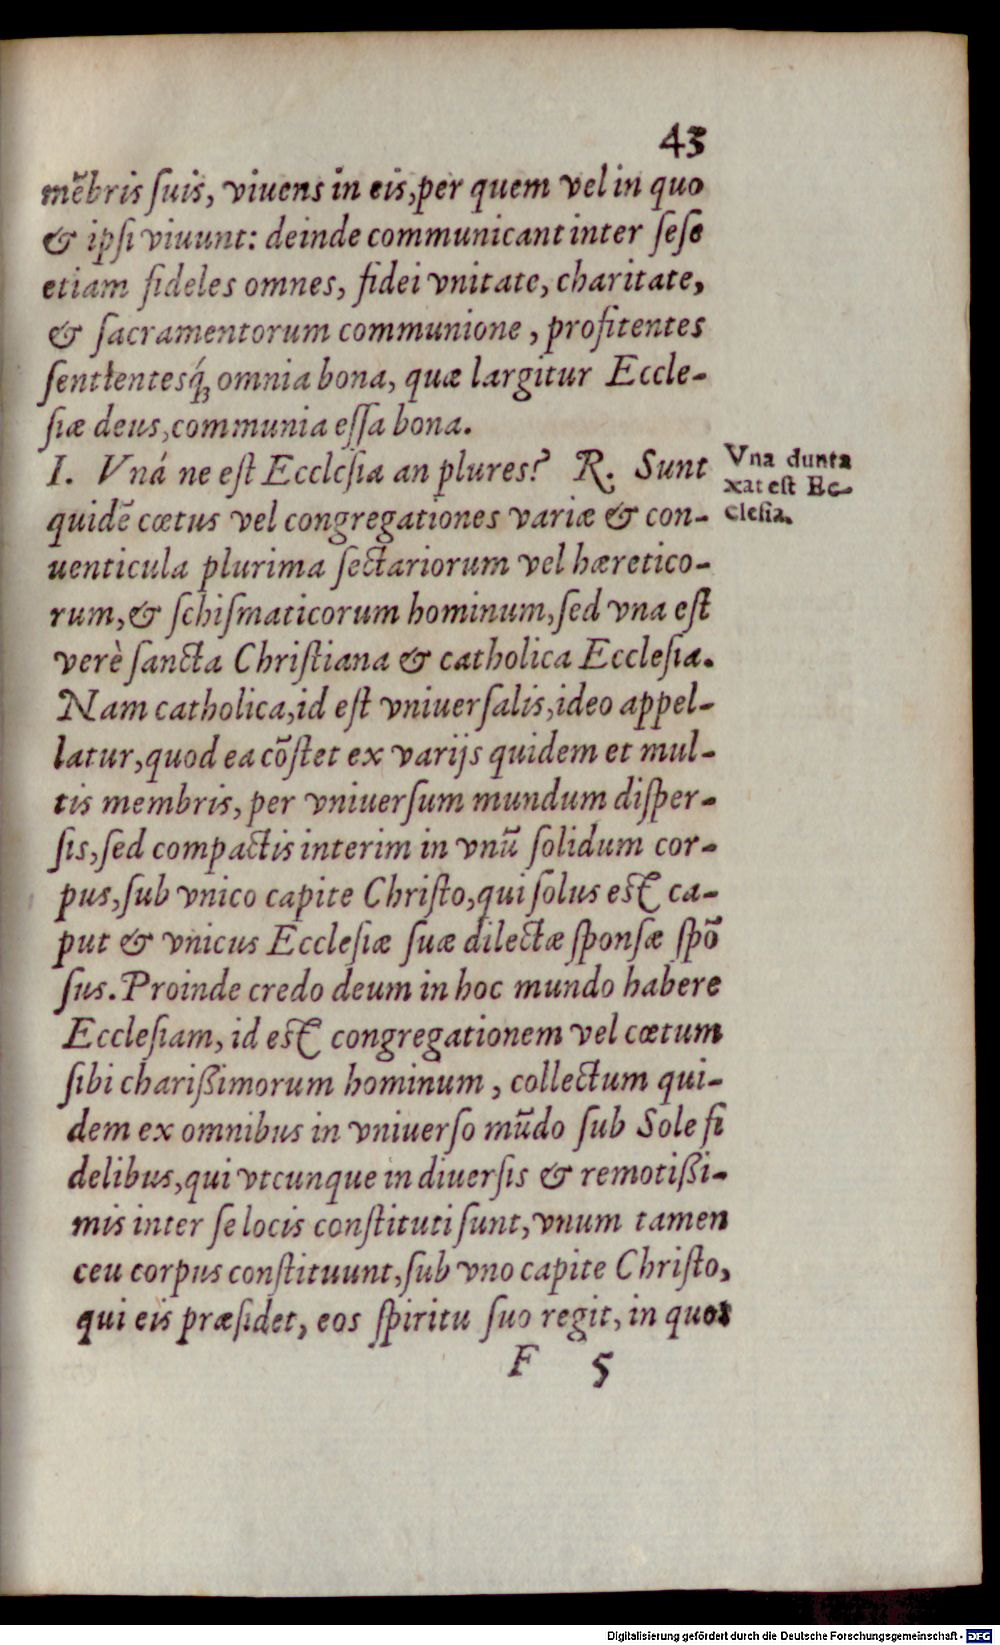 43
mēbris ſuis, viuens in eis, per quem vel in quo
& ipſi viuunt: deinde communicant inter ſeſe
etiam fideles omnes, fidei vnitate, charitate,
& ſacramentorum communione, profitentes
ſentientesq́ꝫ omnia bona, quæ largitur Eccle-
ſiæ deus, communia eſſa bona.
I. Vná ne eſt Eccleſia an plures? R. Sunt
quidē cœtus vel congregationes variæ & con-
uenticula plurima ſectariorum vel hæretico-
rum, & ſchiſmaticorum hominum, ſed vna eſt
verè ſancta Chriſtiana & catholica Eccleſia.
Nam catholica, id eſt vniuerſalis, ideo appel-
latur, quod ea cōſtet ex varijs quidem et mul-
tis membris, per vniuerſum mundum diſper-
ſis, ſed compactis interim in vnū ſolidum cor-
pus, ſub vnico capite Chriſto, qui ſolus eſt ca-
put & vnicus Eccleſiæ ſuæ dilectæ ſponſæ ſpō
ſus. Proinde credo deum in hoc mundo habere
Eccleſiam, id eſt congregationem vel cœtum
ſibi charißimorum hominum, collectum qui-
dem ex omnibus in vniuerſo mūdo ſub Sole fi
delibus, qui vtcunque in diuerſis & remotißi-
mis inter ſe locis conſtituti ſunt, vnum tamen
ceu corpus conſtituunt, ſub vno capite Chriſto,
qui eis præſidet, eos ſpiritu ſuo regit, in quos
F 5
Vna dunta
xat est Ec-
clesia.
Digitalisierung gefördert durch die Deutsche Forschungsgemeinschaft - DFG